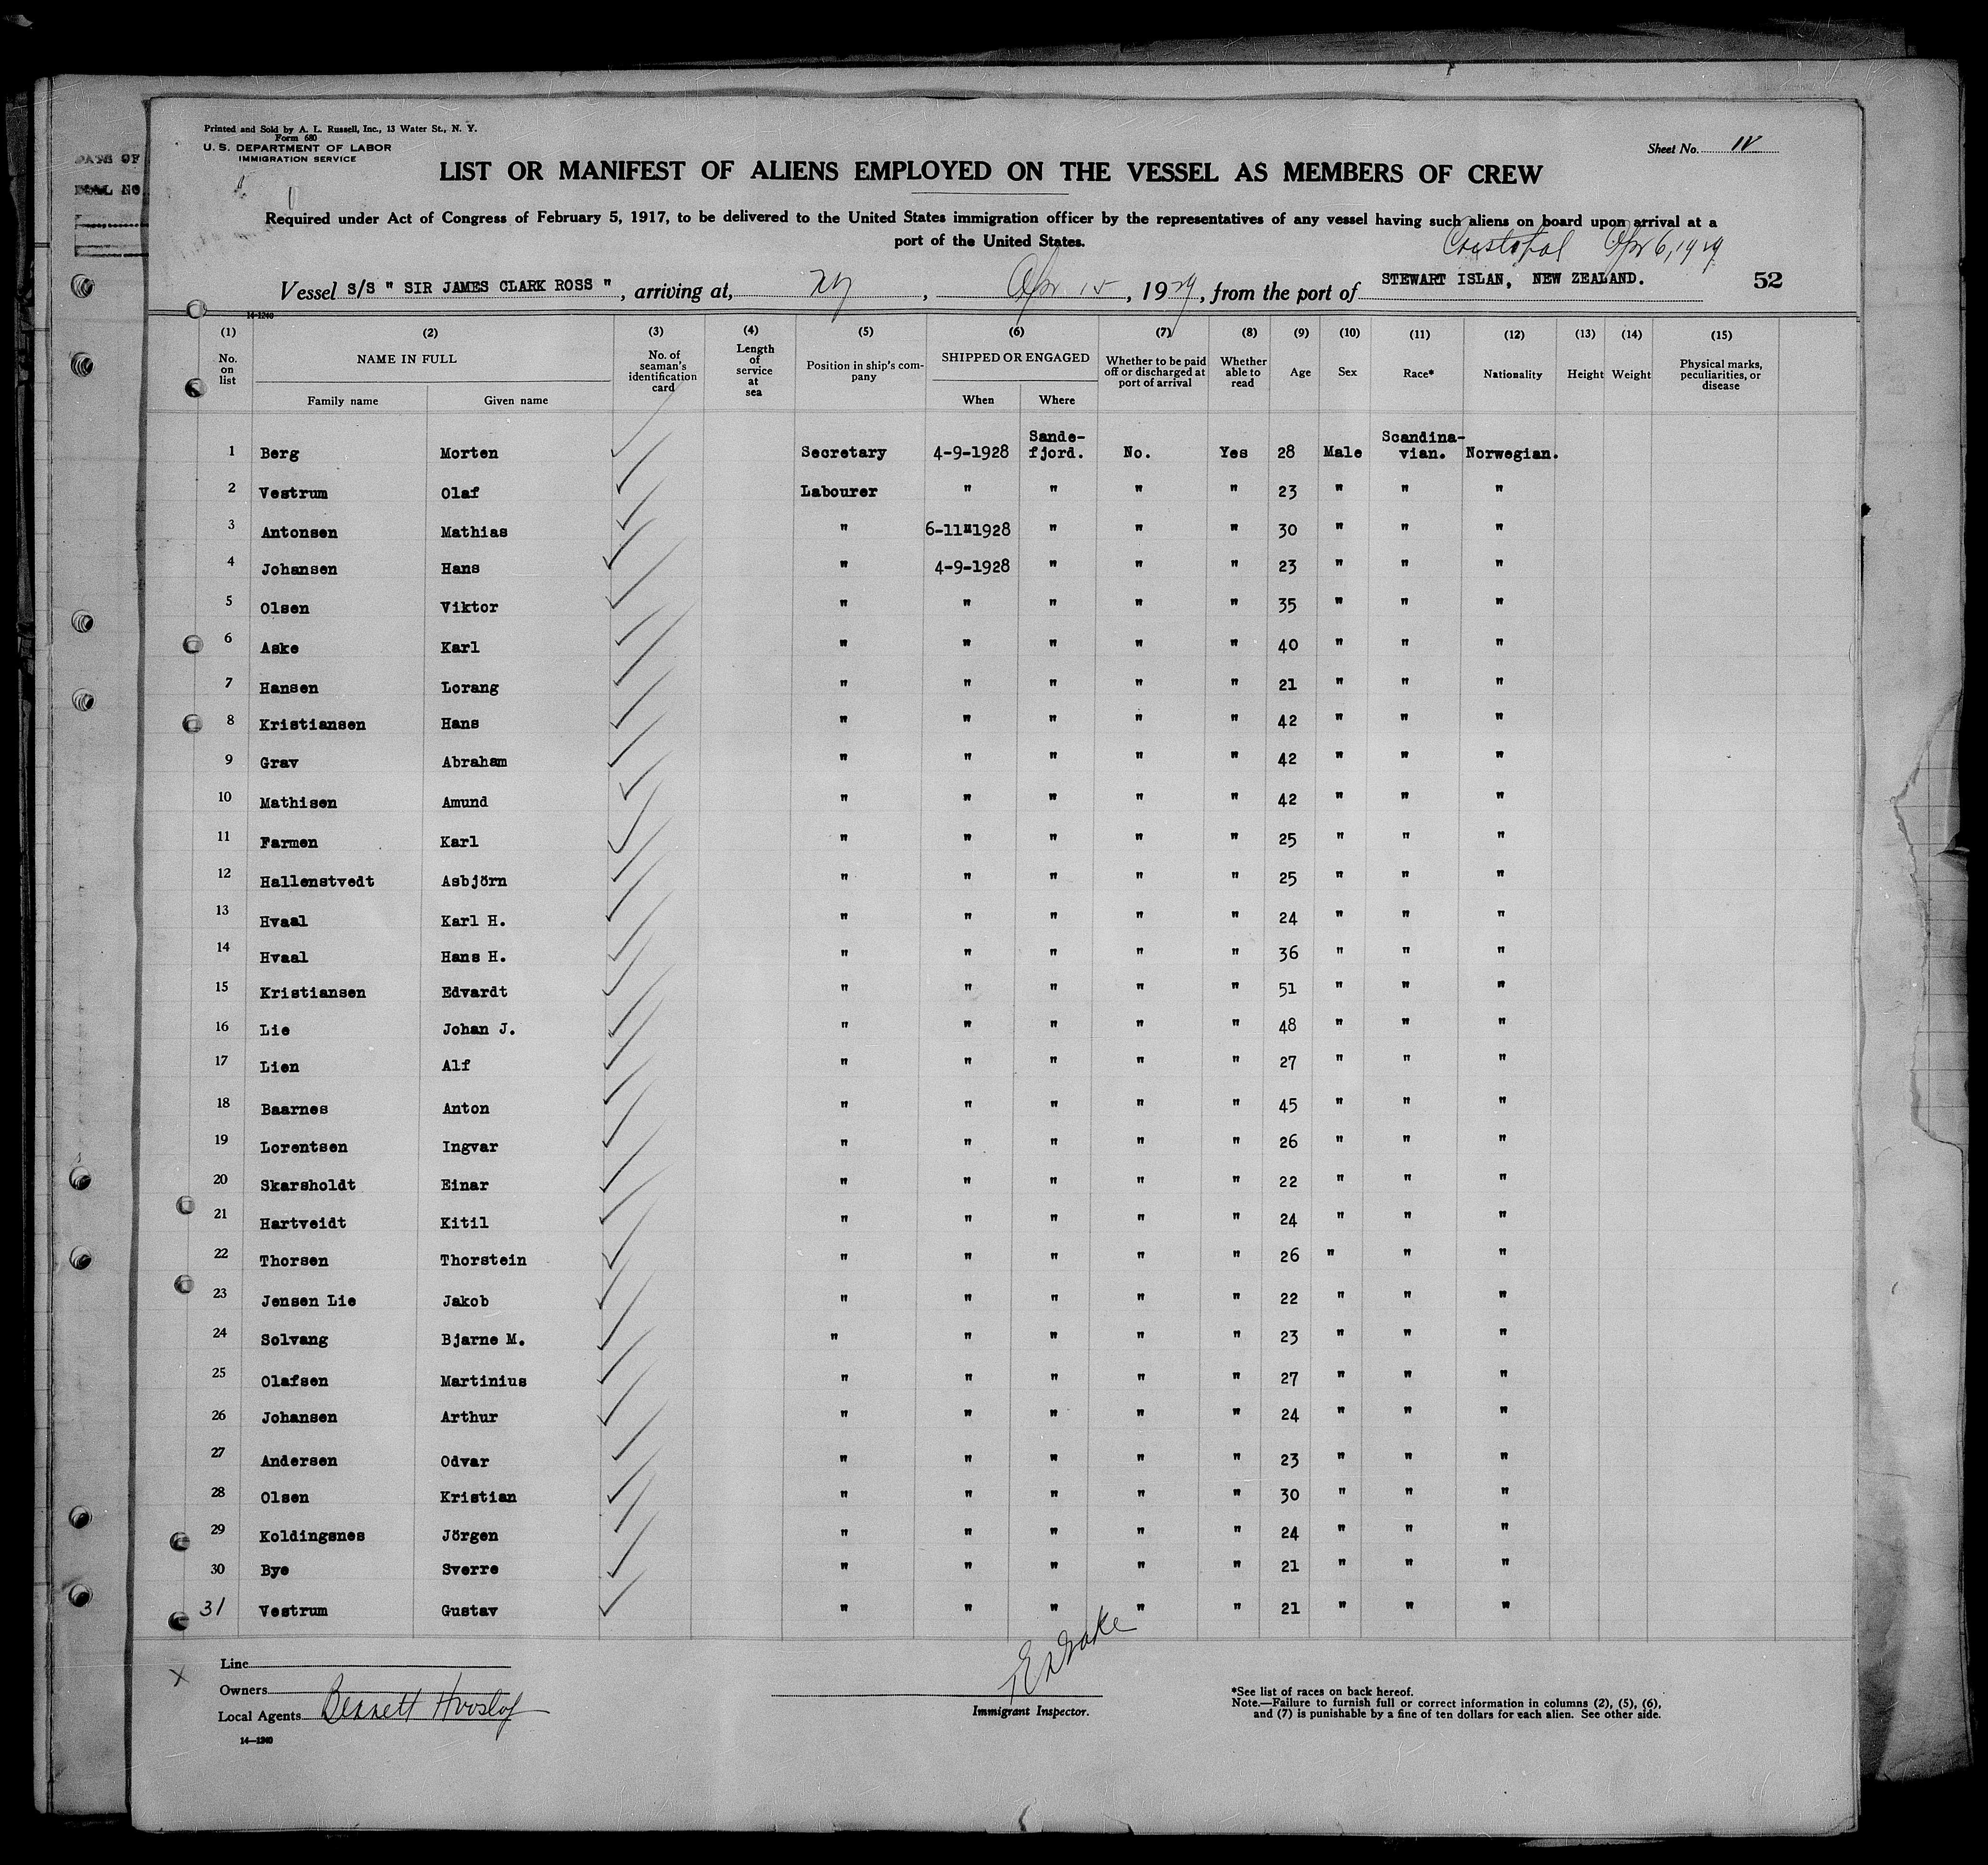 DATE OF
Printed and Sold by A. L. Russell, Inc., 13 Water St., N. Y.
Form 680
U. S. DEPARTMENT OF LABOR
IMMIGRATION SERVICE
Sheet No. IV
LIST OR MANIFEST OF ALIENS EMPLOYED ON THE VESSEL AS MEMBERS OF CREW
Required under Act of Congress of February 5, 1917, to be delivered to the United States immigration officer by the representatives of any vessel having such aliens on board upon arrival at a
port of the United States.
Cristobal Apr 6, 1929
Vessel S/S " SIR JAMES CLARK ROSS ", arriving at, NY, Apr 15, 1929, from the port of STEWART ISLAN, NEW ZEALAND. 52
14-1240
(1) (2) (3) (4) (5) (6) (7) (8) (9) (10) (11) (12) (13) (14) (15)
No. on list NAME IN FULL Family name Given name No. of seaman's identification card Length of service at sea Position in ship's company SHIPPED OR ENGAGED When Where Whether to be paid off or discharged at port of arrival Whether able to read Age Sex Race* Nationality Height Weight Physical marks, peculiarities, or disease
1 Berg Morten Secretary 4-9-1928 Sande-fjord. No. Yes 28 Male Scandina-vian. Norwegian.
2 Vestrum Olaf Labourer " " " " 23 " " "
3 Antonsen Mathias " 6-11-1928 " " " 30 " " "
4 Johansen Hans " 4-9-1928 " " " 23 " " "
5 Olsen Viktor " " " " " 35 " " "
6 Aske Karl " " " " " 40 " " "
7 Hansen Lorang " " " " " 21 " " "
8 Kristiansen Hans " " " " " 42 " " "
9 Grav Abraham " " " " " 42 " " "
10 Mathisen Amund " " " " " 42 " " "
11 Farmen Karl " " " " " 25 " " "
12 Hallenstvedt Asbjörn " " " " " 25 " " "
13 Hvaal Karl H. " " " " " 24 " " "
14 Hvaal Hans H. " " " " " 36 " " "
15 Kristiansen Edvardt " " " " " 51 " " "
16 Lie Johan J. " " " " " 48 " " "
17 Lien Alf " " " " " 27 " " "
18 Baarnes Anton " " " " " 45 " " "
19 Lorentsen Ingvar " " " " " 26 " " "
20 Skarsholdt Einar " " " " " 22 " " "
21 Hartveidt Kitil " " " " " 24 " " "
22 Thorsen Thorstein " " " " " 26 " " "
23 Jensen Lie Jakob " " " " " 22 " " "
24 Solvang Bjarne M. " " " " " 23 " " "
25 Olafsen Martinius " " " " " 27 " " "
26 Johansen Arthur " " " " " 24 " " "
27 Andersen Odvar " " " " " 23 " " "
28 Olsen Kristian " " " " " 30 " " "
29 Koldingsnes Jörgen " " " " " 24 " " "
30 Bye Sverre " " " " " 21 " " "
31 Vestrum Gustav " " " " " 21 " " "
Line
Owners
Local Agents Bennett Hvoslef
14-1240
E Drake
Immigrant Inspector.
*See list of races on back hereof.
Note.—Failure to furnish full or correct information in columns (2), (5), (6),
and (7) is punishable by a fine of ten dollars for each alien. See other side.